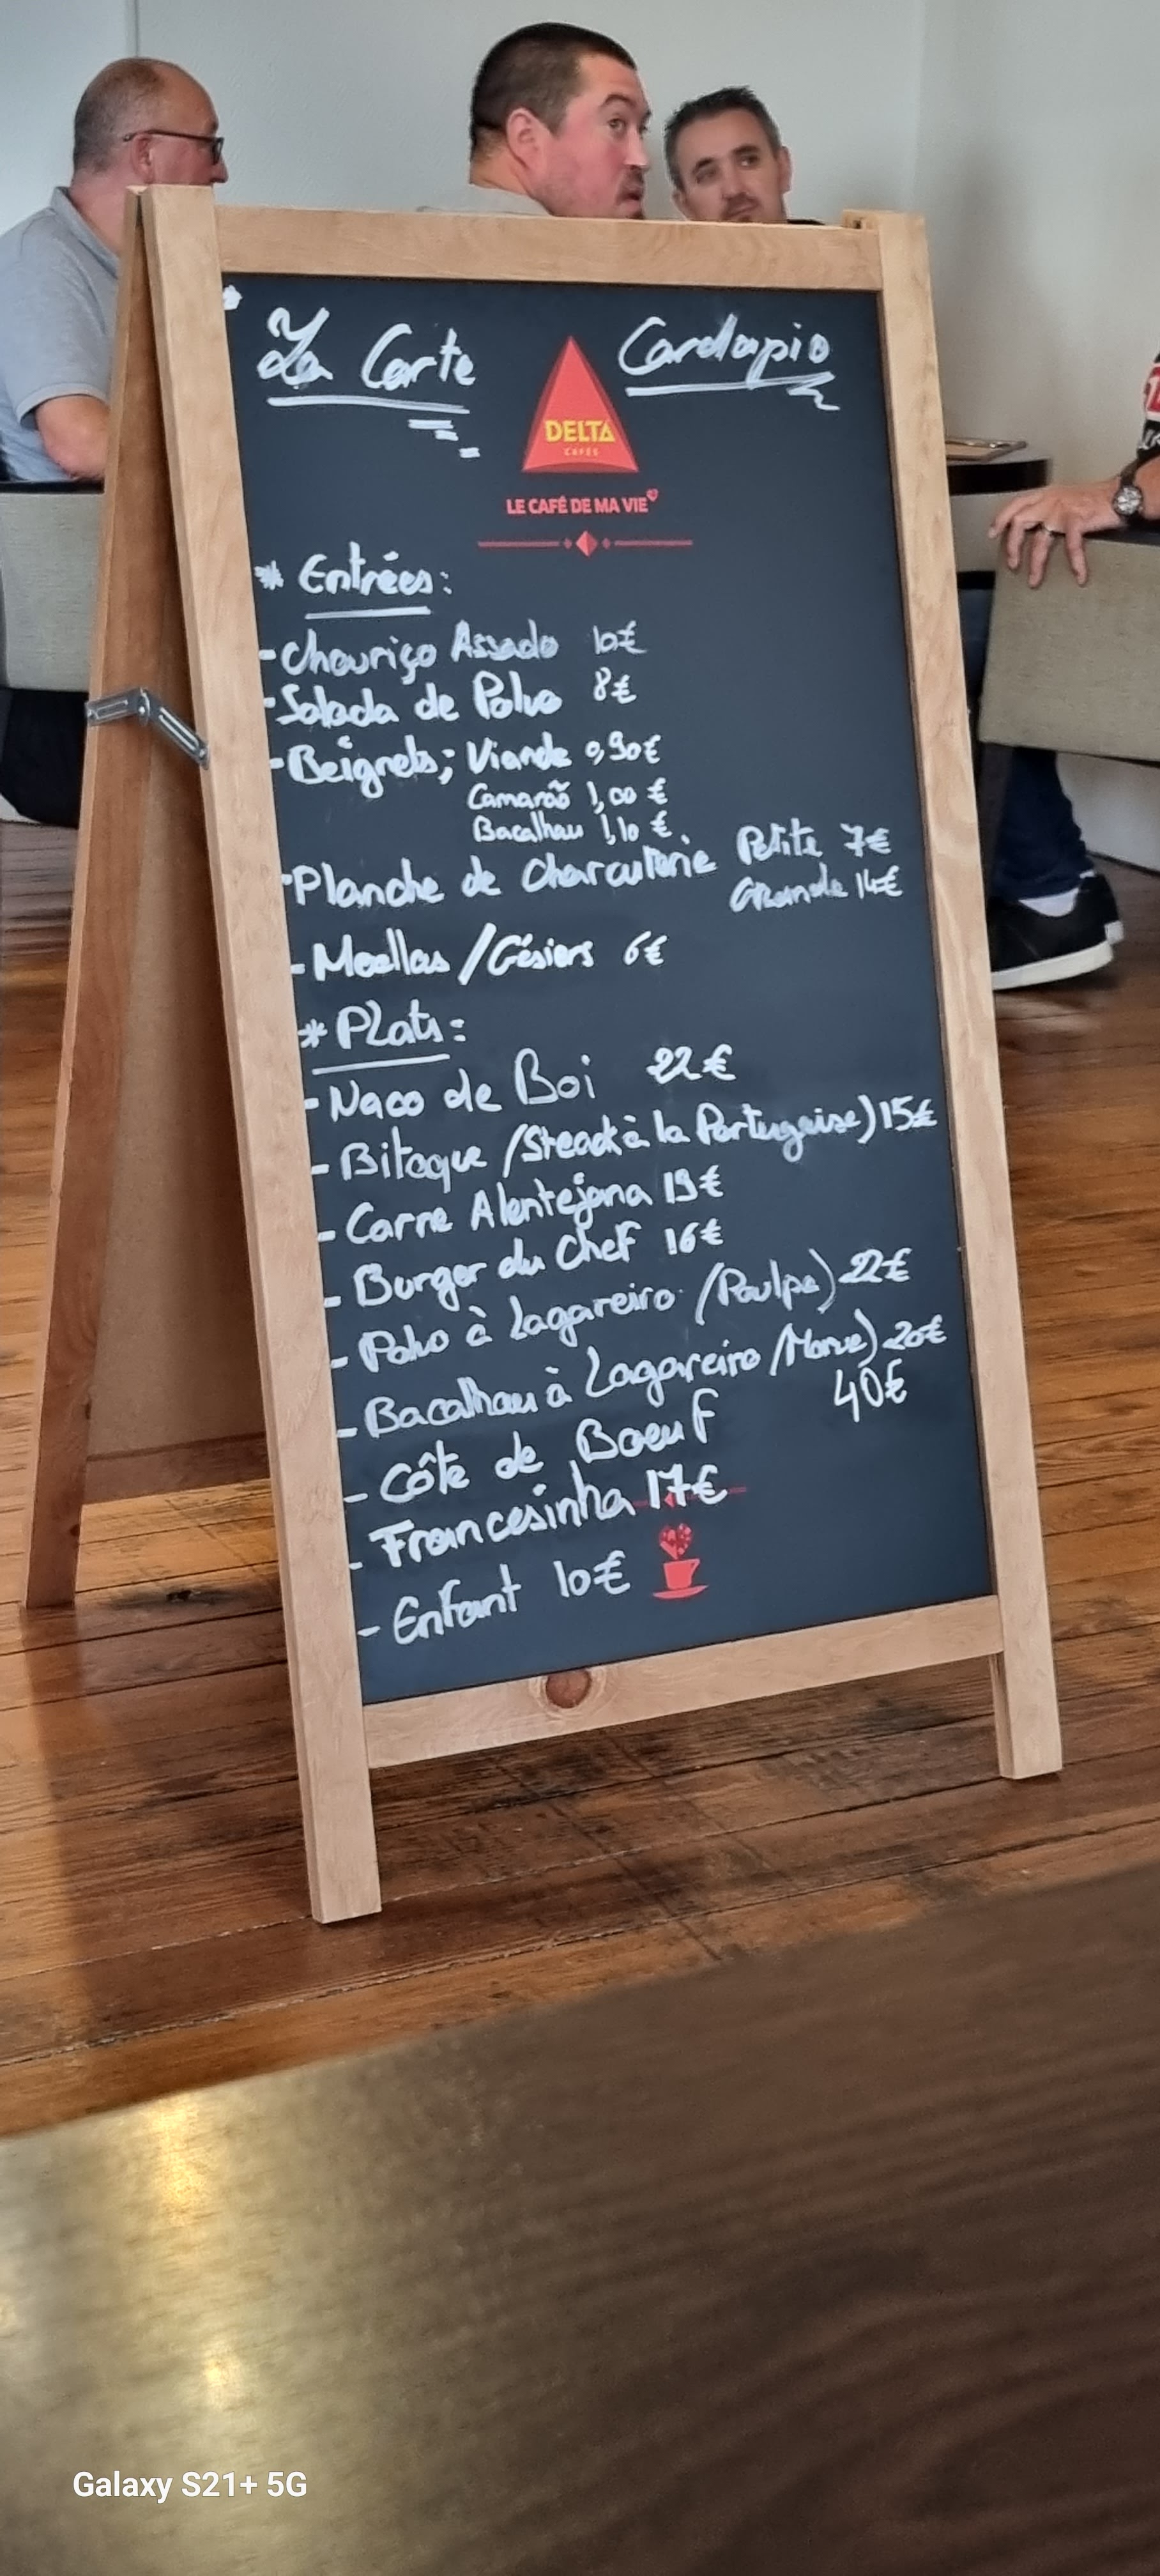 La Carte
Cardapio
DELTA
CAFÉS
LE CAFÉ DE MA VIE
* Entrées:
- Chouriço Assado 10€
- Salada de Polvo 8€
- Beignets; Viande 0,90€
Camarão 1,00 €
Bacalhau 1,10 €
- Planche de Charcuterie Petite 7€
Grande 14€
- Moellas / Gésiers 6€
* Plats:
- Naco de Boi 22€
- Bitoque /Steack à la Portugaise) 15€
- Carne Alentejana 19€
- Burger du Chef 16€
- Polvo à Lagareiro (Poulpe) 22€
- Bacalhau à Lagareiro /Morue) 20€
- Côte de Boeuf 40€
- Francesinha 17€
- Enfant 10€
Galaxy S21+ 5G